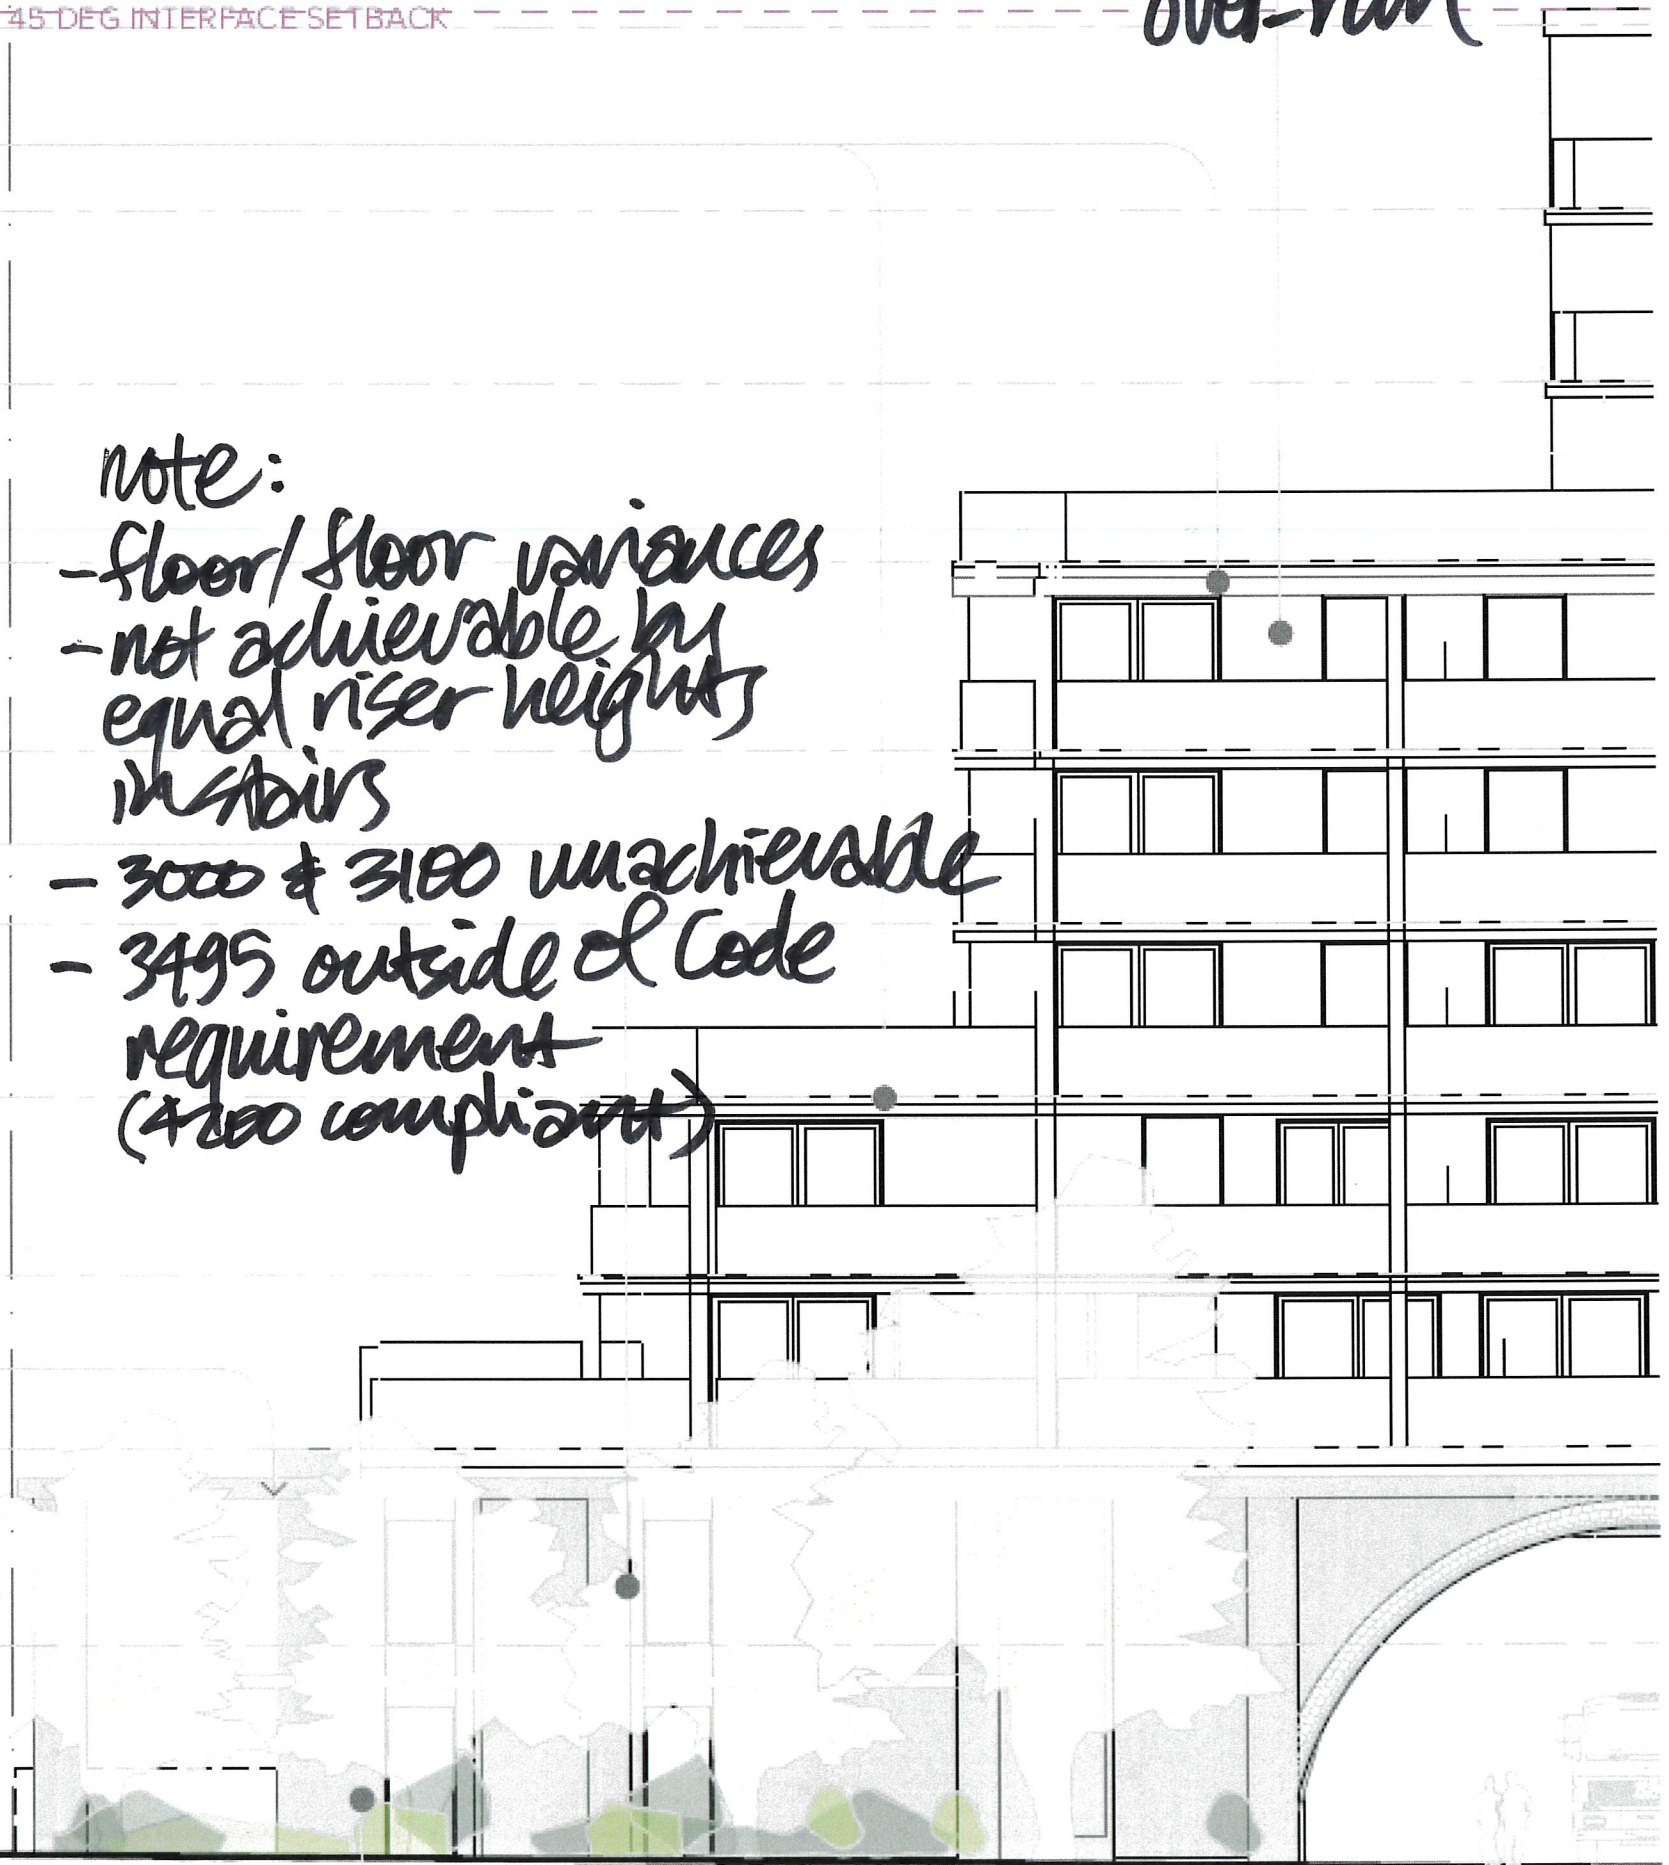 45 DEG INTERFACE SETBACK
over-run
note:
- floor/floor variances
- not achievable by
equal riser heights
in stairs
- 3000 & 3100 unachievable
- 3495 outside of Code
requirement
(4200 compliant)